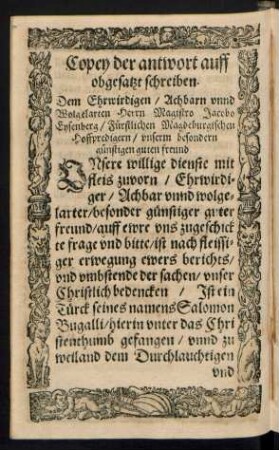 Copey der antwort auff
obgesatzt schreiben.
Dem Ehrwirdigen / Achbarn vnnd
Wolgelarten Herrn Magistro Jacobo
Eysenberg / Fürstlichen Magdeburgischen
Hoffpredigern / vnserm besondern
günstigen guten freund
VNsere willige dienste mit
fleis zuvorn / Ehrwirdi-
ger / Achbar vnnd wolge-
larter / besonder günstiger guter
freund / auff ewre vns zugeschick
te frage vnd bitte / ist nach fleissi-
ger erwegung ewers berichts /
vnd vmbstende der sachen / vnser
Christlich bedencken / Ist ein
Türck seines namens Salomon
Bugalli / hierin vnter das Chri
stenthumb gefangen / vnnd zu
weiland dem Durchlauchtigen
vnd